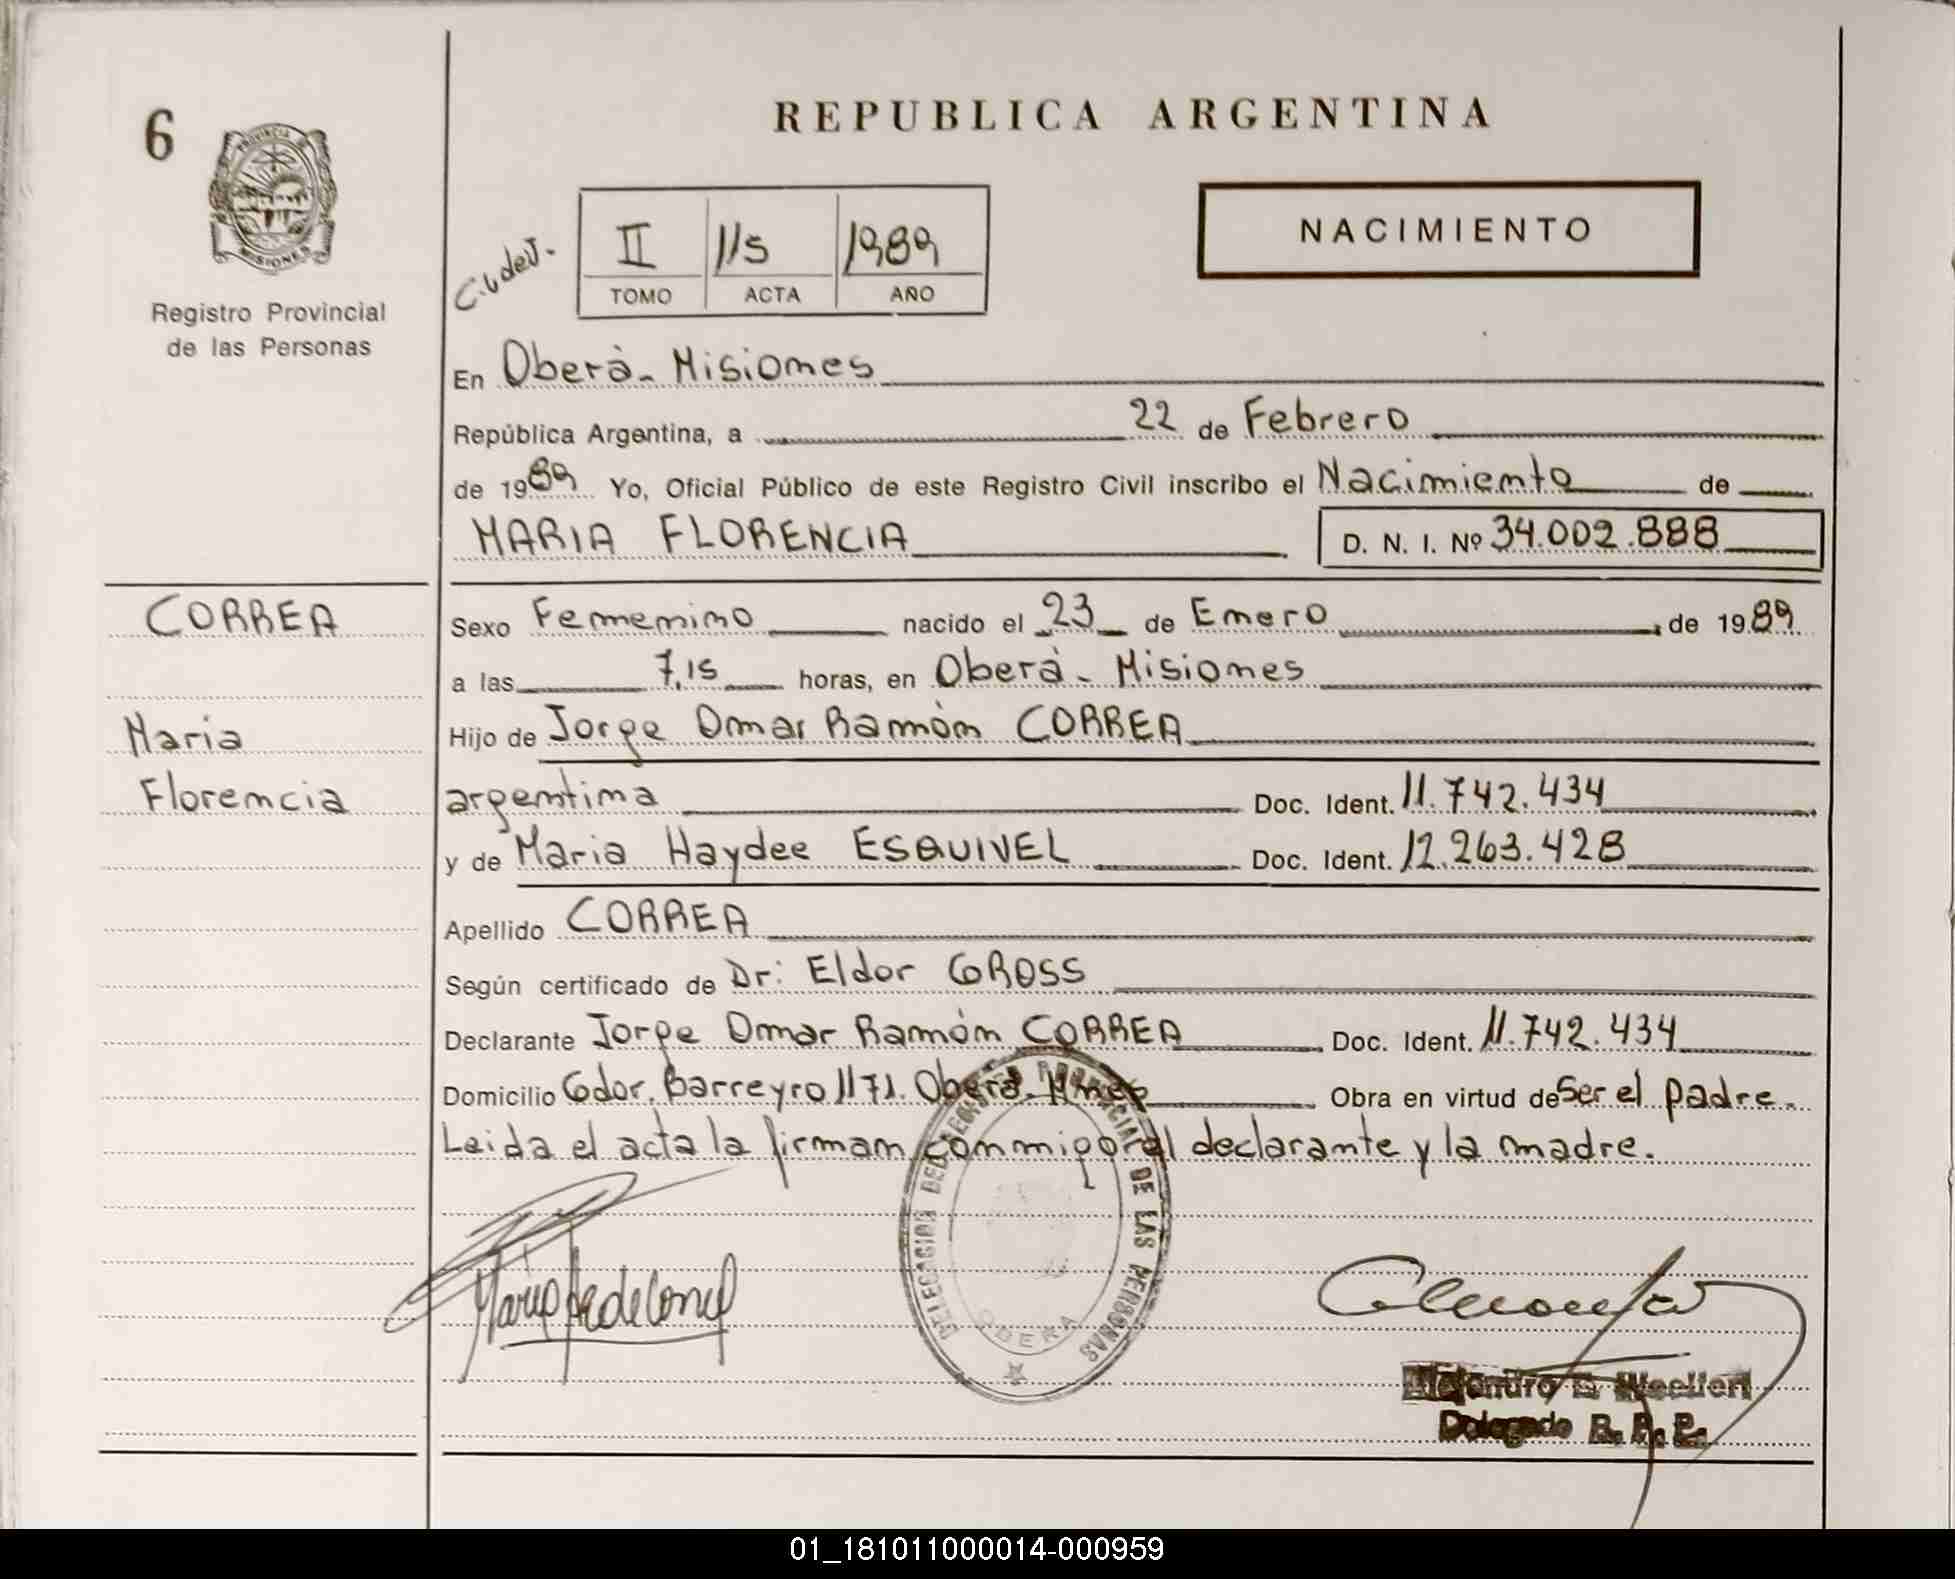 6
PROVINCIA DE
MISIONES
Registro Provincial
de las Personas
REPUBLICA ARGENTINA
NACIMIENTO
II 115 1989
TOMO ACTA AÑO
En Oberà - Misiones
República Argentina, a 22 de Febrero
de 1989 Yo, Oficial Público de este Registro Civil inscribo el Nacimiento de
MARIA FLORENCIA D. N. I. Nº 34.002.888
CORREA
Maria
Florencia
Sexo Femenino nacido el 23 de Enero de 1989
a las 7,15 horas, en Oberà - Misiones
Hijo de Jorge Omar Ramón CORREA
argentina Doc. Ident. 11.742.434
y de Maria Haydee ESQUIVEL Doc. Ident. 12.263.428
Apellido CORREA
Según certificado de Dr: Eldor GROSS
Declarante Jorge Omar Ramón CORREA Doc. Ident. 11.742.434
Domicilio Gdor. Barreyro 1171. Oberà. Mnes Obra en virtud de Ser el padre.
Leida el acta la firman conmigo el declarante y la madre.
DELEGACION DEL REGISTRO PROVINCIAL DE LAS PERSONAS
OBERA
Alejandro
Delegado R. P. P.
01_181011000014-000959